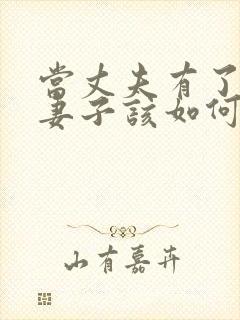 當丈夫有了
妻子該如何
山有嘉卉